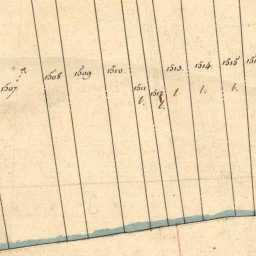 1507
1508
1509
1510
1511
1512
1513
1514
1515